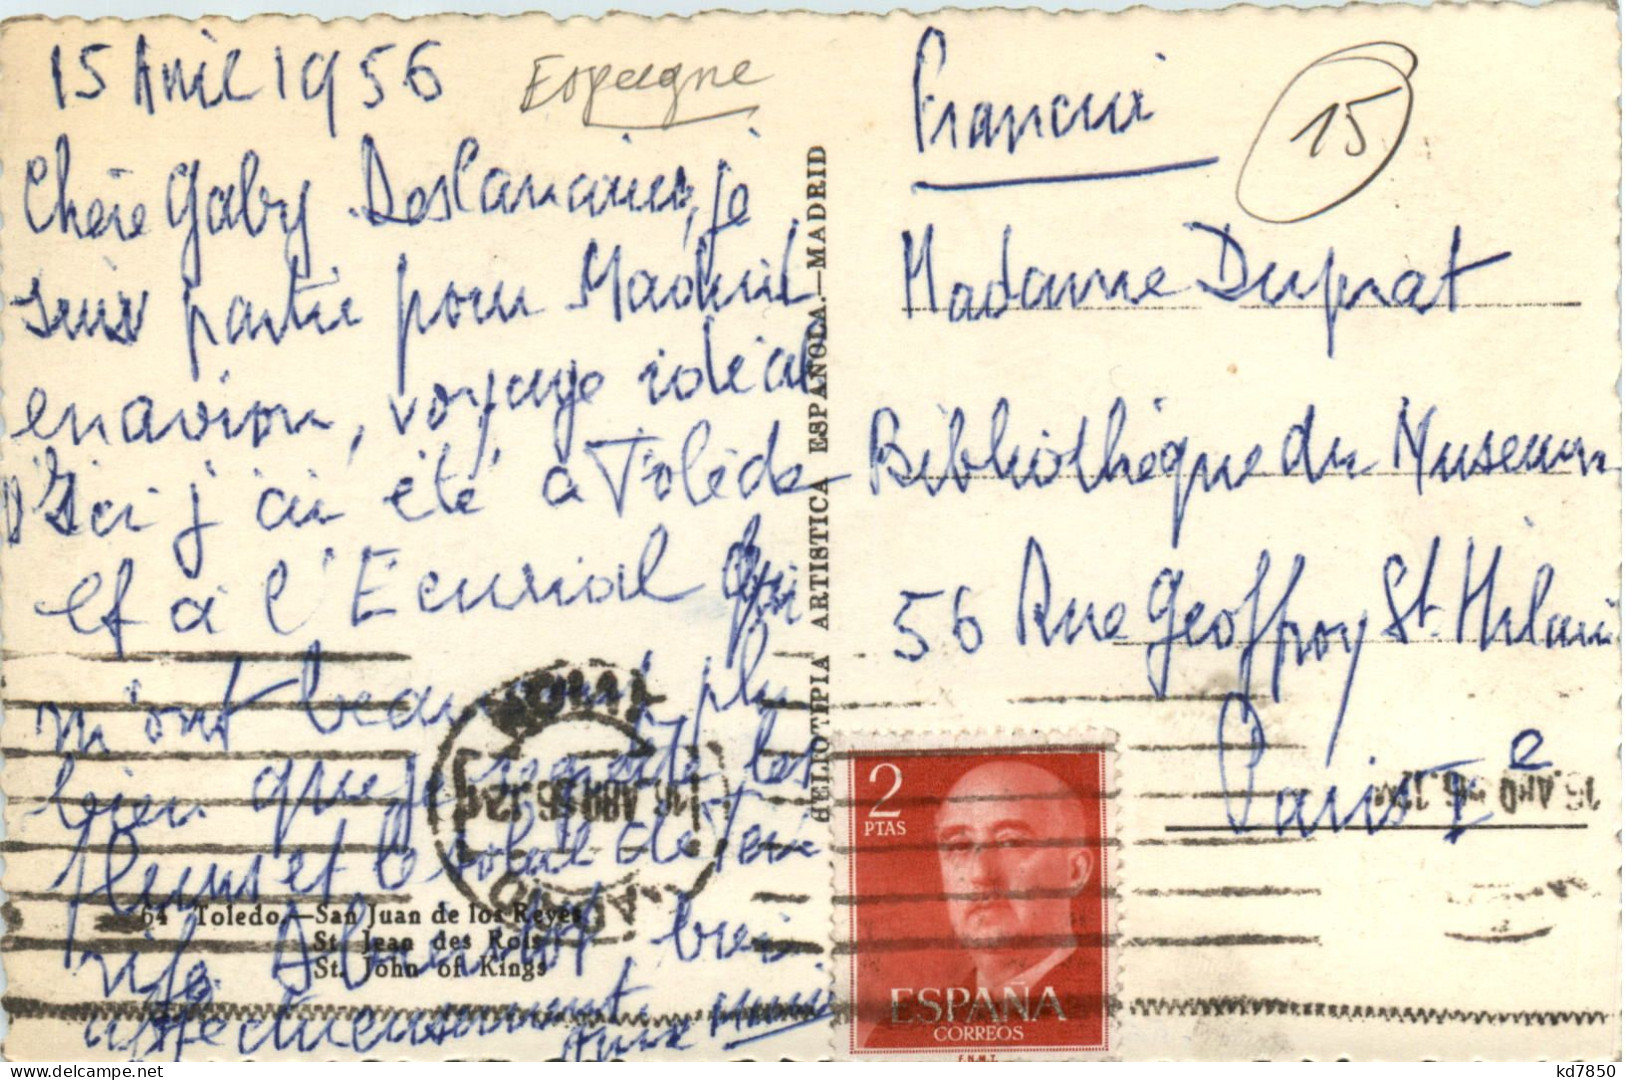 15 Avril 1956
Espagne
Chère Gaby je
suis partie pour Madrid
en avion, voyage idéal
Ici j'ai été à Tolède
et à l'Ecurial qui
m'ont beaucoup plu
bien que les
fleurs et le soleil de
bien
affectueusement
64 Toledo.—San Juan de los Reyes
St. Jean des Rois
St. John of Kings
HELIOTIPIA ARTISTICA ESPAÑOLA.—MADRID
15
Madame Duprat
Bibliothèque du Museum
56 Rue Geoffroy St. Hilaire
Paris Ve
16. ABR 56. 12
2
PTAS
ESPAÑA
CORREOS
F.N.M.T.
kd7850